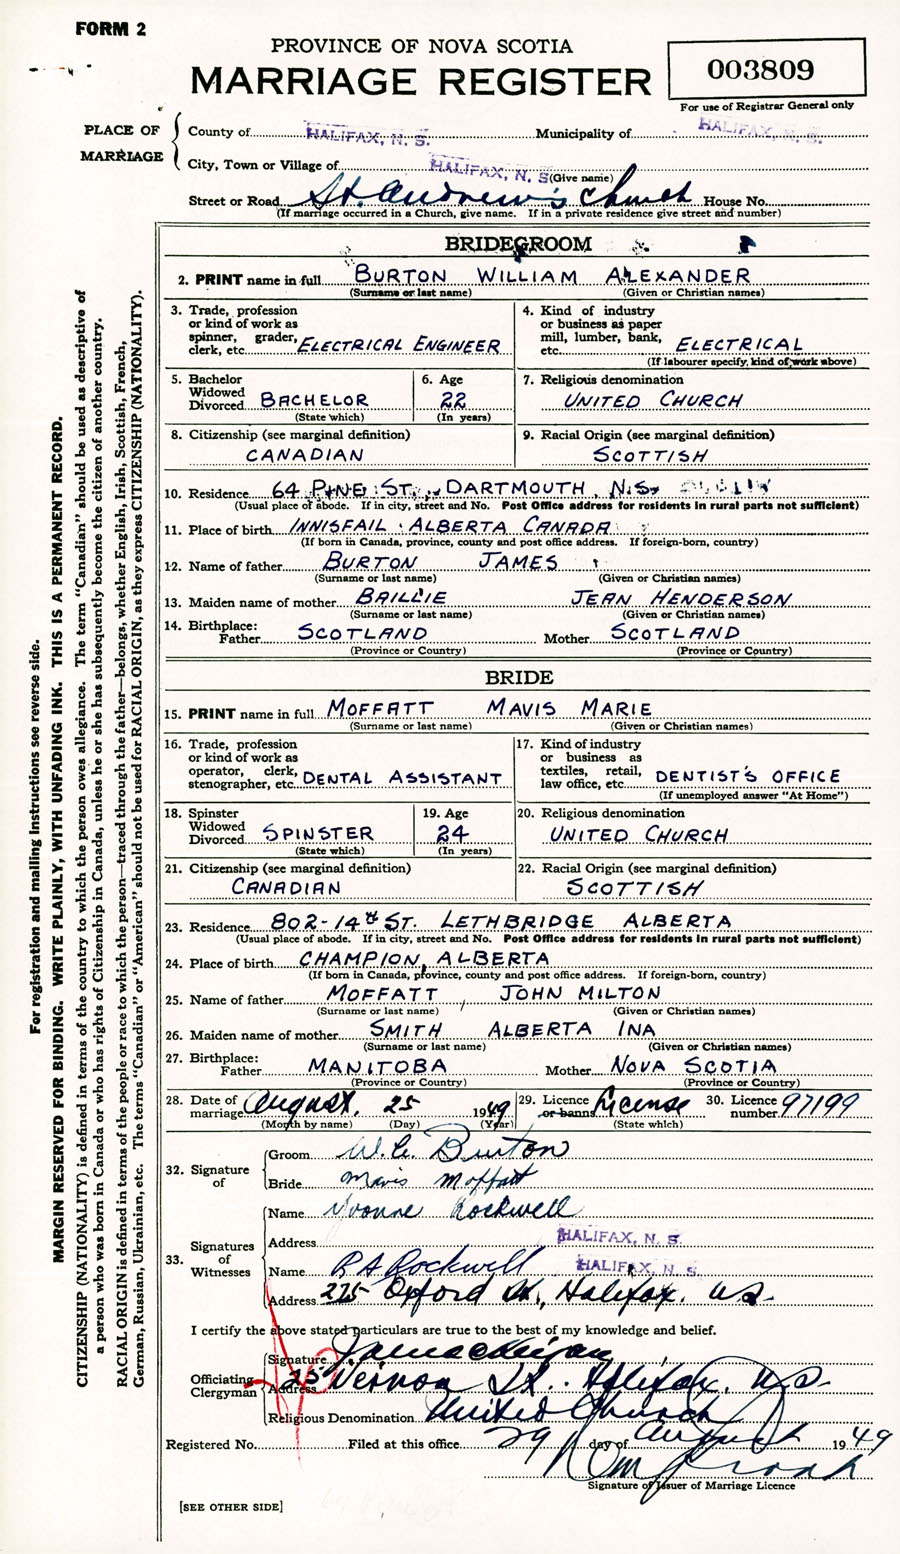 FORM 2
PROVINCE OF NOVA SCOTIA
MARRIAGE REGISTER
003809
For use of Registrar General only
PLACE OF MARRIAGE
County of HALIFAX, N. S. Municipality of HALIFAX, N. S.
City, Town or Village of HALIFAX, N. S. (Give name)
Street or Road St. Andrew's Church House No.
(If marriage occurred in a Church, give name. If in a private residence give street and number)
BRIDEGROOM
2. PRINT name in full BURTON WILLIAM ALEXANDER
(Surname or last name) (Given or Christian names)
3. Trade, profession
or kind of work as
spinner, grader,
clerk, etc. ELECTRICAL ENGINEER
4. Kind of industry
or business as paper
mill, lumber, bank,
etc. ELECTRICAL
(If labourer specify, kind of work above)
5. Bachelor
Widowed
Divorced BACHELOR
(State which)
6. Age
22
(In years)
7. Religious denomination
UNITED CHURCH
8. Citizenship (see marginal definition)
CANADIAN
9. Racial Origin (see marginal definition)
SCOTTISH
10. Residence 64 PINE ST., DARTMOUTH, N.S.
(Usual place of abode. If in city, street and No. Post Office address for residents in rural parts not sufficient)
11. Place of birth INNISFAIL ALBERTA CANADA
(If born in Canada, province, county and post office address. If foreign-born, country)
12. Name of father BURTON JAMES
(Surname or last name) (Given or Christian names)
13. Maiden name of mother BAILLIE JEAN HENDERSON
(Surname or last name) (Given or Christian names)
14. Birthplace:
Father SCOTLAND Mother SCOTLAND
(Province or Country) (Province or Country)
BRIDE
15. PRINT name in full MOFFATT MAVIS MARIE
(Surname or last name) (Given or Christian names)
16. Trade, profession
or kind of work as
operator, clerk,
stenographer, etc. DENTAL ASSISTANT
17. Kind of industry
or business as
textiles, retail,
law office, etc. DENTIST'S OFFICE
(If unemployed answer "At Home")
18. Spinster
Widowed
Divorced SPINSTER
(State which)
19. Age
24
(In years)
20. Religious denomination
UNITED CHURCH
21. Citizenship (see marginal definition)
CANADIAN
22. Racial Origin (see marginal definition)
SCOTTISH
23. Residence 802-14th ST. LETHBRIDGE ALBERTA
(Usual place of abode. If in city, street and No. Post Office address for residents in rural parts not sufficient)
24. Place of birth CHAMPION, ALBERTA
(If born in Canada, province, county and post office address. If foreign-born, country)
25. Name of father MOFFATT, JOHN MILTON
(Surname or last name) (Given or Christian names)
26. Maiden name of mother SMITH ALBERTA INA
(Surname or last name) (Given or Christian names)
27. Birthplace:
Father MANITOBA Mother NOVA SCOTIA
(Province or Country) (Province or Country)
28. Date of
marriage August 25 1949
(Month by name) (Day) (Year)
29. Licence
or banns License
(State which)
30. Licence
number 97199
32. Signature of
Groom W. A. Burton
Bride Mavis Moffatt
33. Signatures of Witnesses
Name Yvonne Rockwell
Address HALIFAX, N. S.
Name R A Rockwell HALIFAX, N. S.
Address 275 Oxford St., Halifax, N.S.
I certify the above stated particulars are true to the best of my knowledge and belief.
Officiating Clergyman
Signature
Address 25 Vernon St. Halifax, N.S.
Religious Denomination United Church
Registered No. Filed at this office 29 day of August 1949
Signature of Issuer of Marriage Licence
[SEE OTHER SIDE]
For registration and mailing instructions see reverse side.
MARGIN RESERVED FOR BINDING. WRITE PLAINLY, WITH UNFADING INK. THIS IS A PERMANENT RECORD.
CITIZENSHIP (NATIONALITY) is defined in terms of the country to which the person owes allegiance. The term "Canadian" should be used as descriptive of
a person who was born in Canada or who has rights of Citizenship in Canada, unless he or she has subsequently become the citizen of another country.
RACIAL ORIGIN is defined in terms of the people or race to which the person—traced through the father—belongs, whether English, Irish, Scottish, French,
German, Russian, Ukrainian, etc. The terms "Canadian" or "American" should not be used for RACIAL ORIGIN, as they express CITIZENSHIP (NATIONALITY).